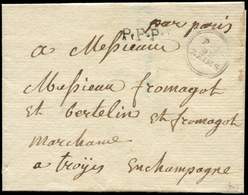 par paris
P.P.P.P.
a Messieurs
Messieurs fromagot
et bertelin et fromagot
marchand
a troyes en champagne